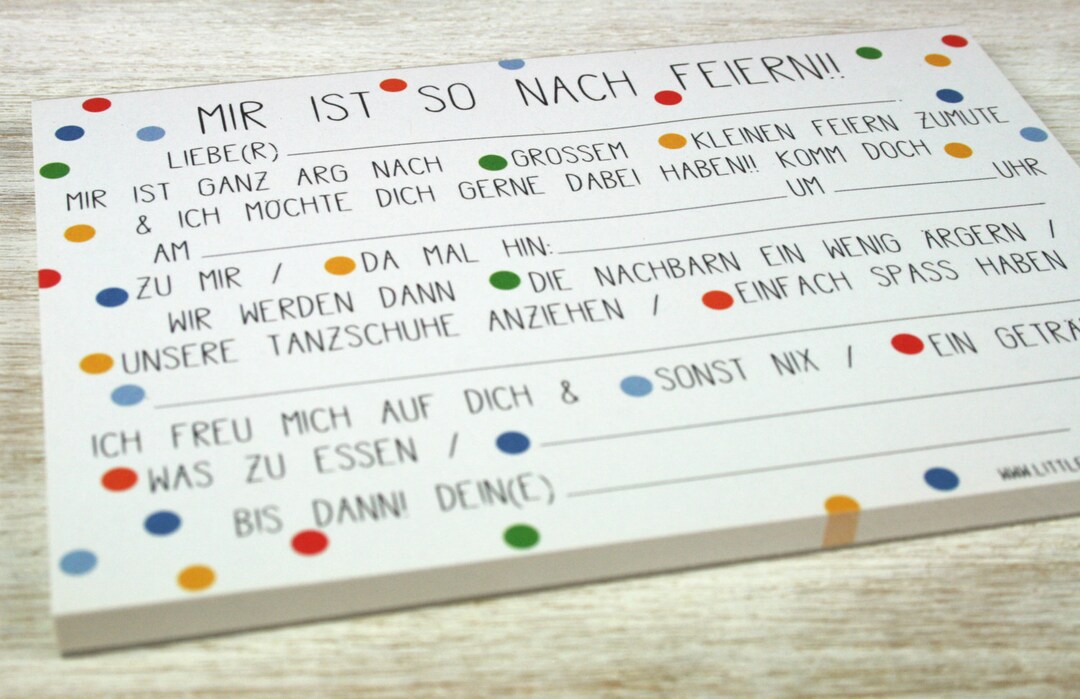 MIR IST SO NACH FEIERN!!
LIEBE(R)
MIR IST GANZ ARG NACH GROSSEM KLEINEN FEIERN ZUMUTE
& ICH MÖCHTE DICH GERNE DABEI HABEN!! KOMM DOCH
AM UM UHR
ZU MIR / DA MAL HIN:
WIR WERDEN DANN DIE NACHBARN EIN WENIG ÄRGERN /
UNSERE TANZSCHUHE ANZIEHEN / EINFACH SPASS HABEN
ICH FREU MICH AUF DICH & SONST NIX / EIN GETRÄ
WAS ZU ESSEN /
BIS DANN! DEIN(E)
WWW.LITTLE